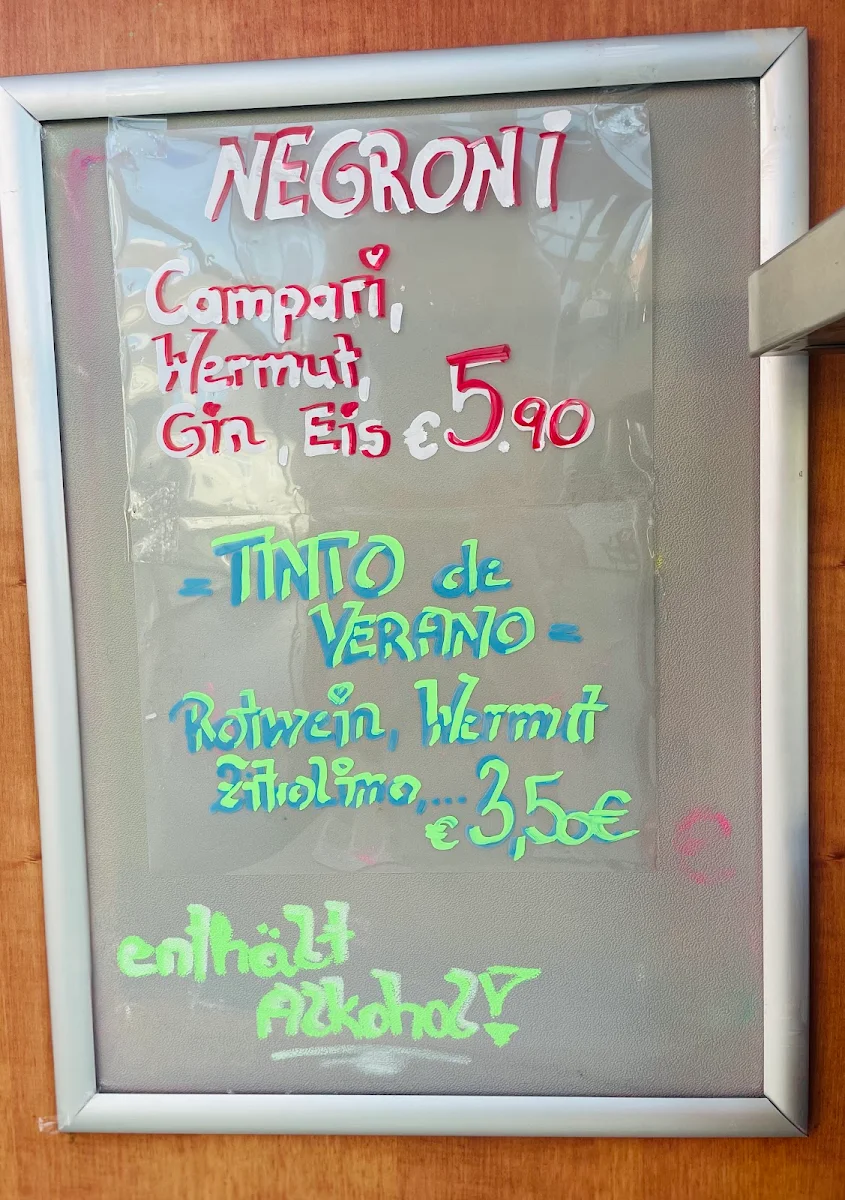 NEGRONI
Campari,
Wermut,
Gin, Eis €5.90
= TINTO de
VERANO =
Rotwein, Wermut
Zitrolimo,... €3,50€
enthält
Alkohol!